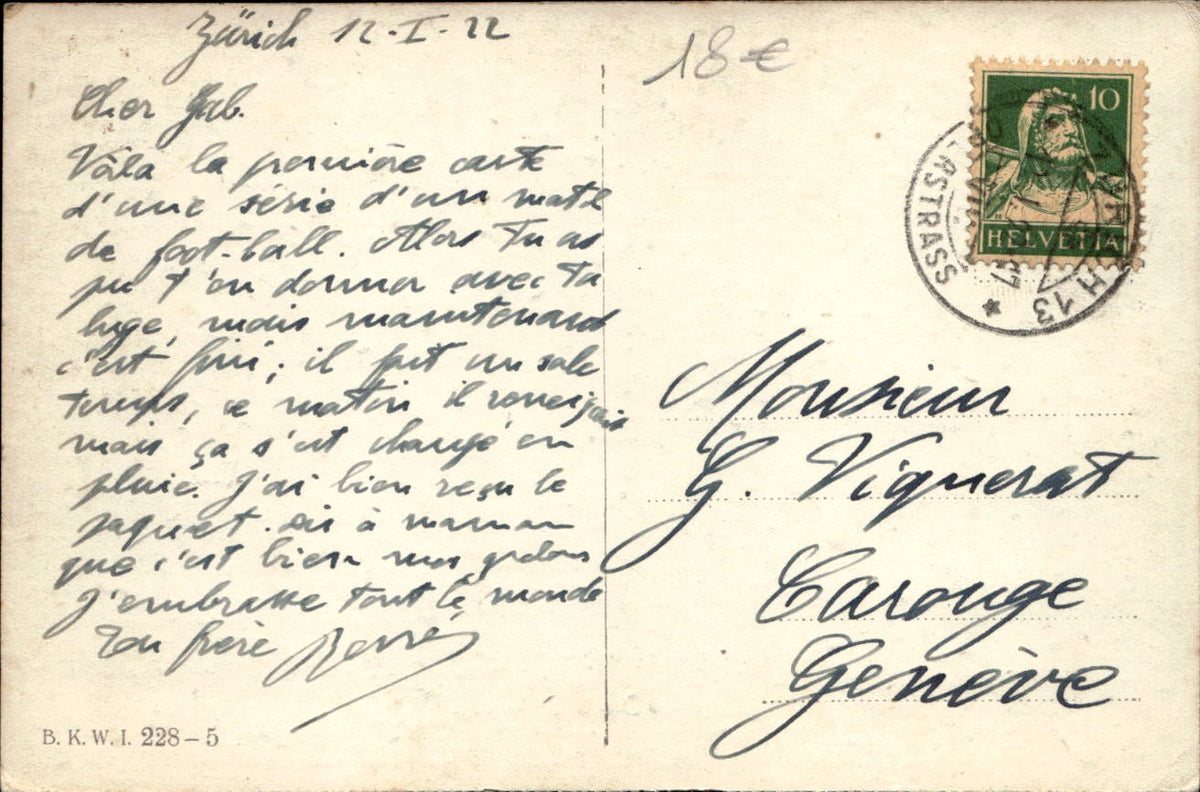 Zürich 12-I-22
18 €
Cher Gab.
Voilà la première carte
d'une série d'un match
de foot-ball. Alors tu as
pu t'en donner avec ta
luge, mais maintenant
c'est fini; il fait un sale
temps, ce matin il
mais ça s'est changé en
pluie. J'ai bien reçu le
paquet. Dis à maman
que c'est bien mes
J'embrasse tout le monde
Ton frère
Monsieur
G. Viquerat
Carouge
Genève
10
HELVETIA
ZÜRICH 13
B. K. W. I. 228-5